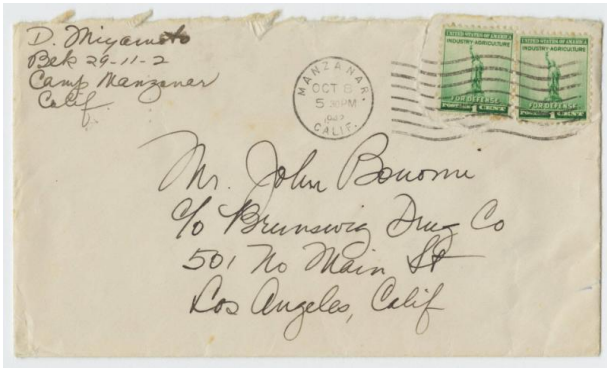 D. Miyamoto
Blk 29-11-2
Camp Manzanar
Calif.
MANZANAR.
OCT 8
5 30PM
CALIF.
UNITED STATES OF AMERICA
INDUSTRY·AGRICULTURE
FOR DEFENSE
POSTAGE 1 CENT
UNITED STATES OF AMERICA
INDUSTRY·AGRICULTURE
FOR DEFENSE
POSTAGE 1 CENT
Mr. John Bonomi
c/o Brunswig Drug Co
501 No Main St
Los Angeles, Calif